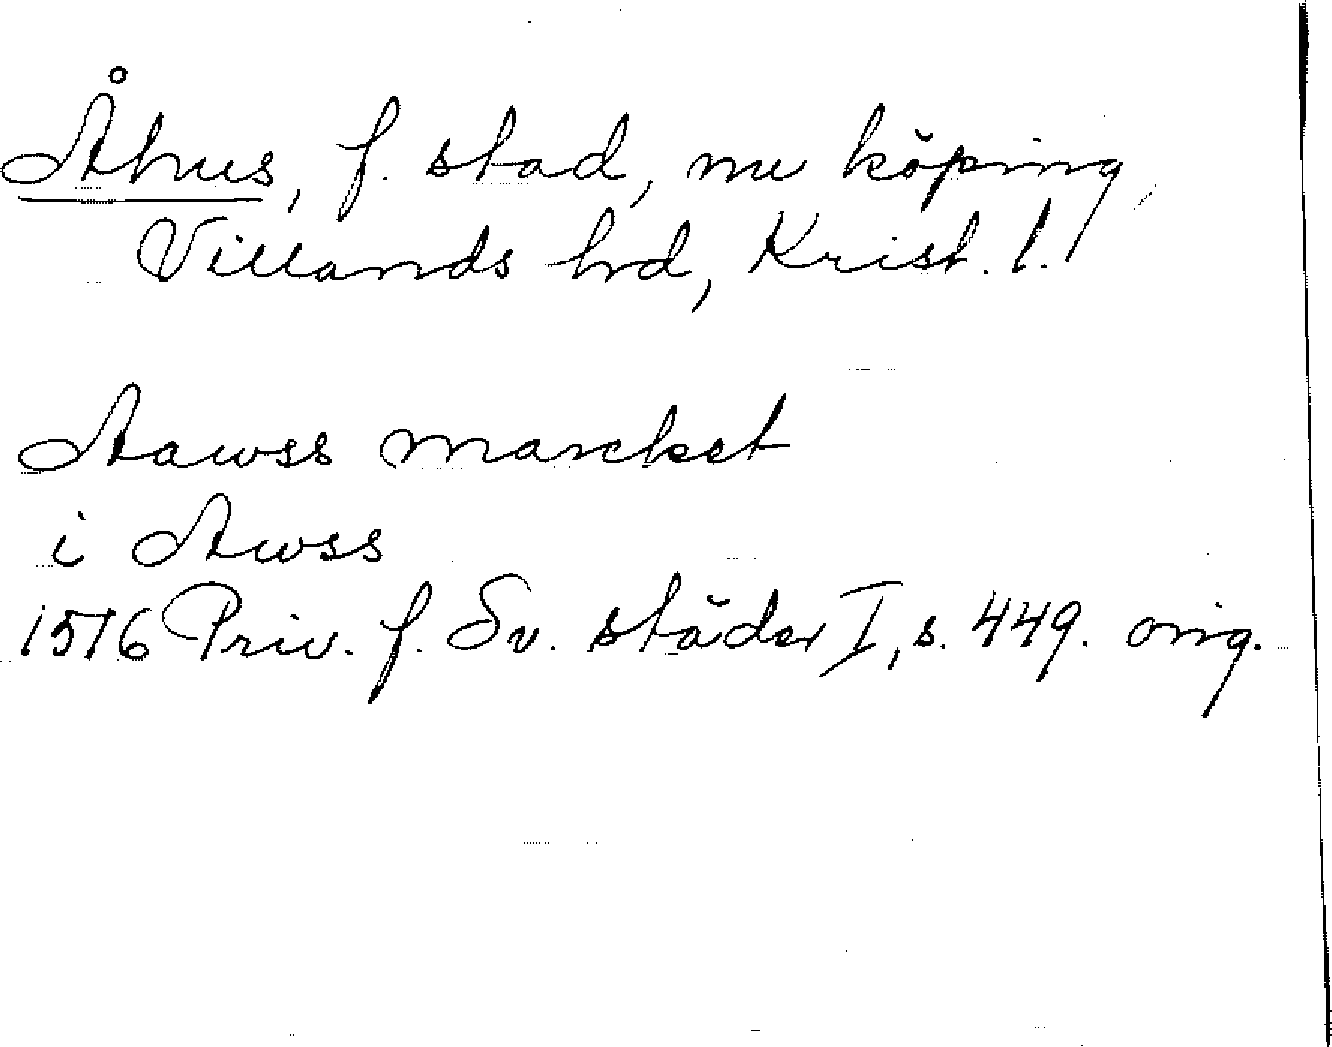 Åhus, f. stad, nu köping,
Villands hrd, Krist. l.
Aawss marcket
i Awss
1516 Priv. f. Sv. städer I, s. 449. orig.